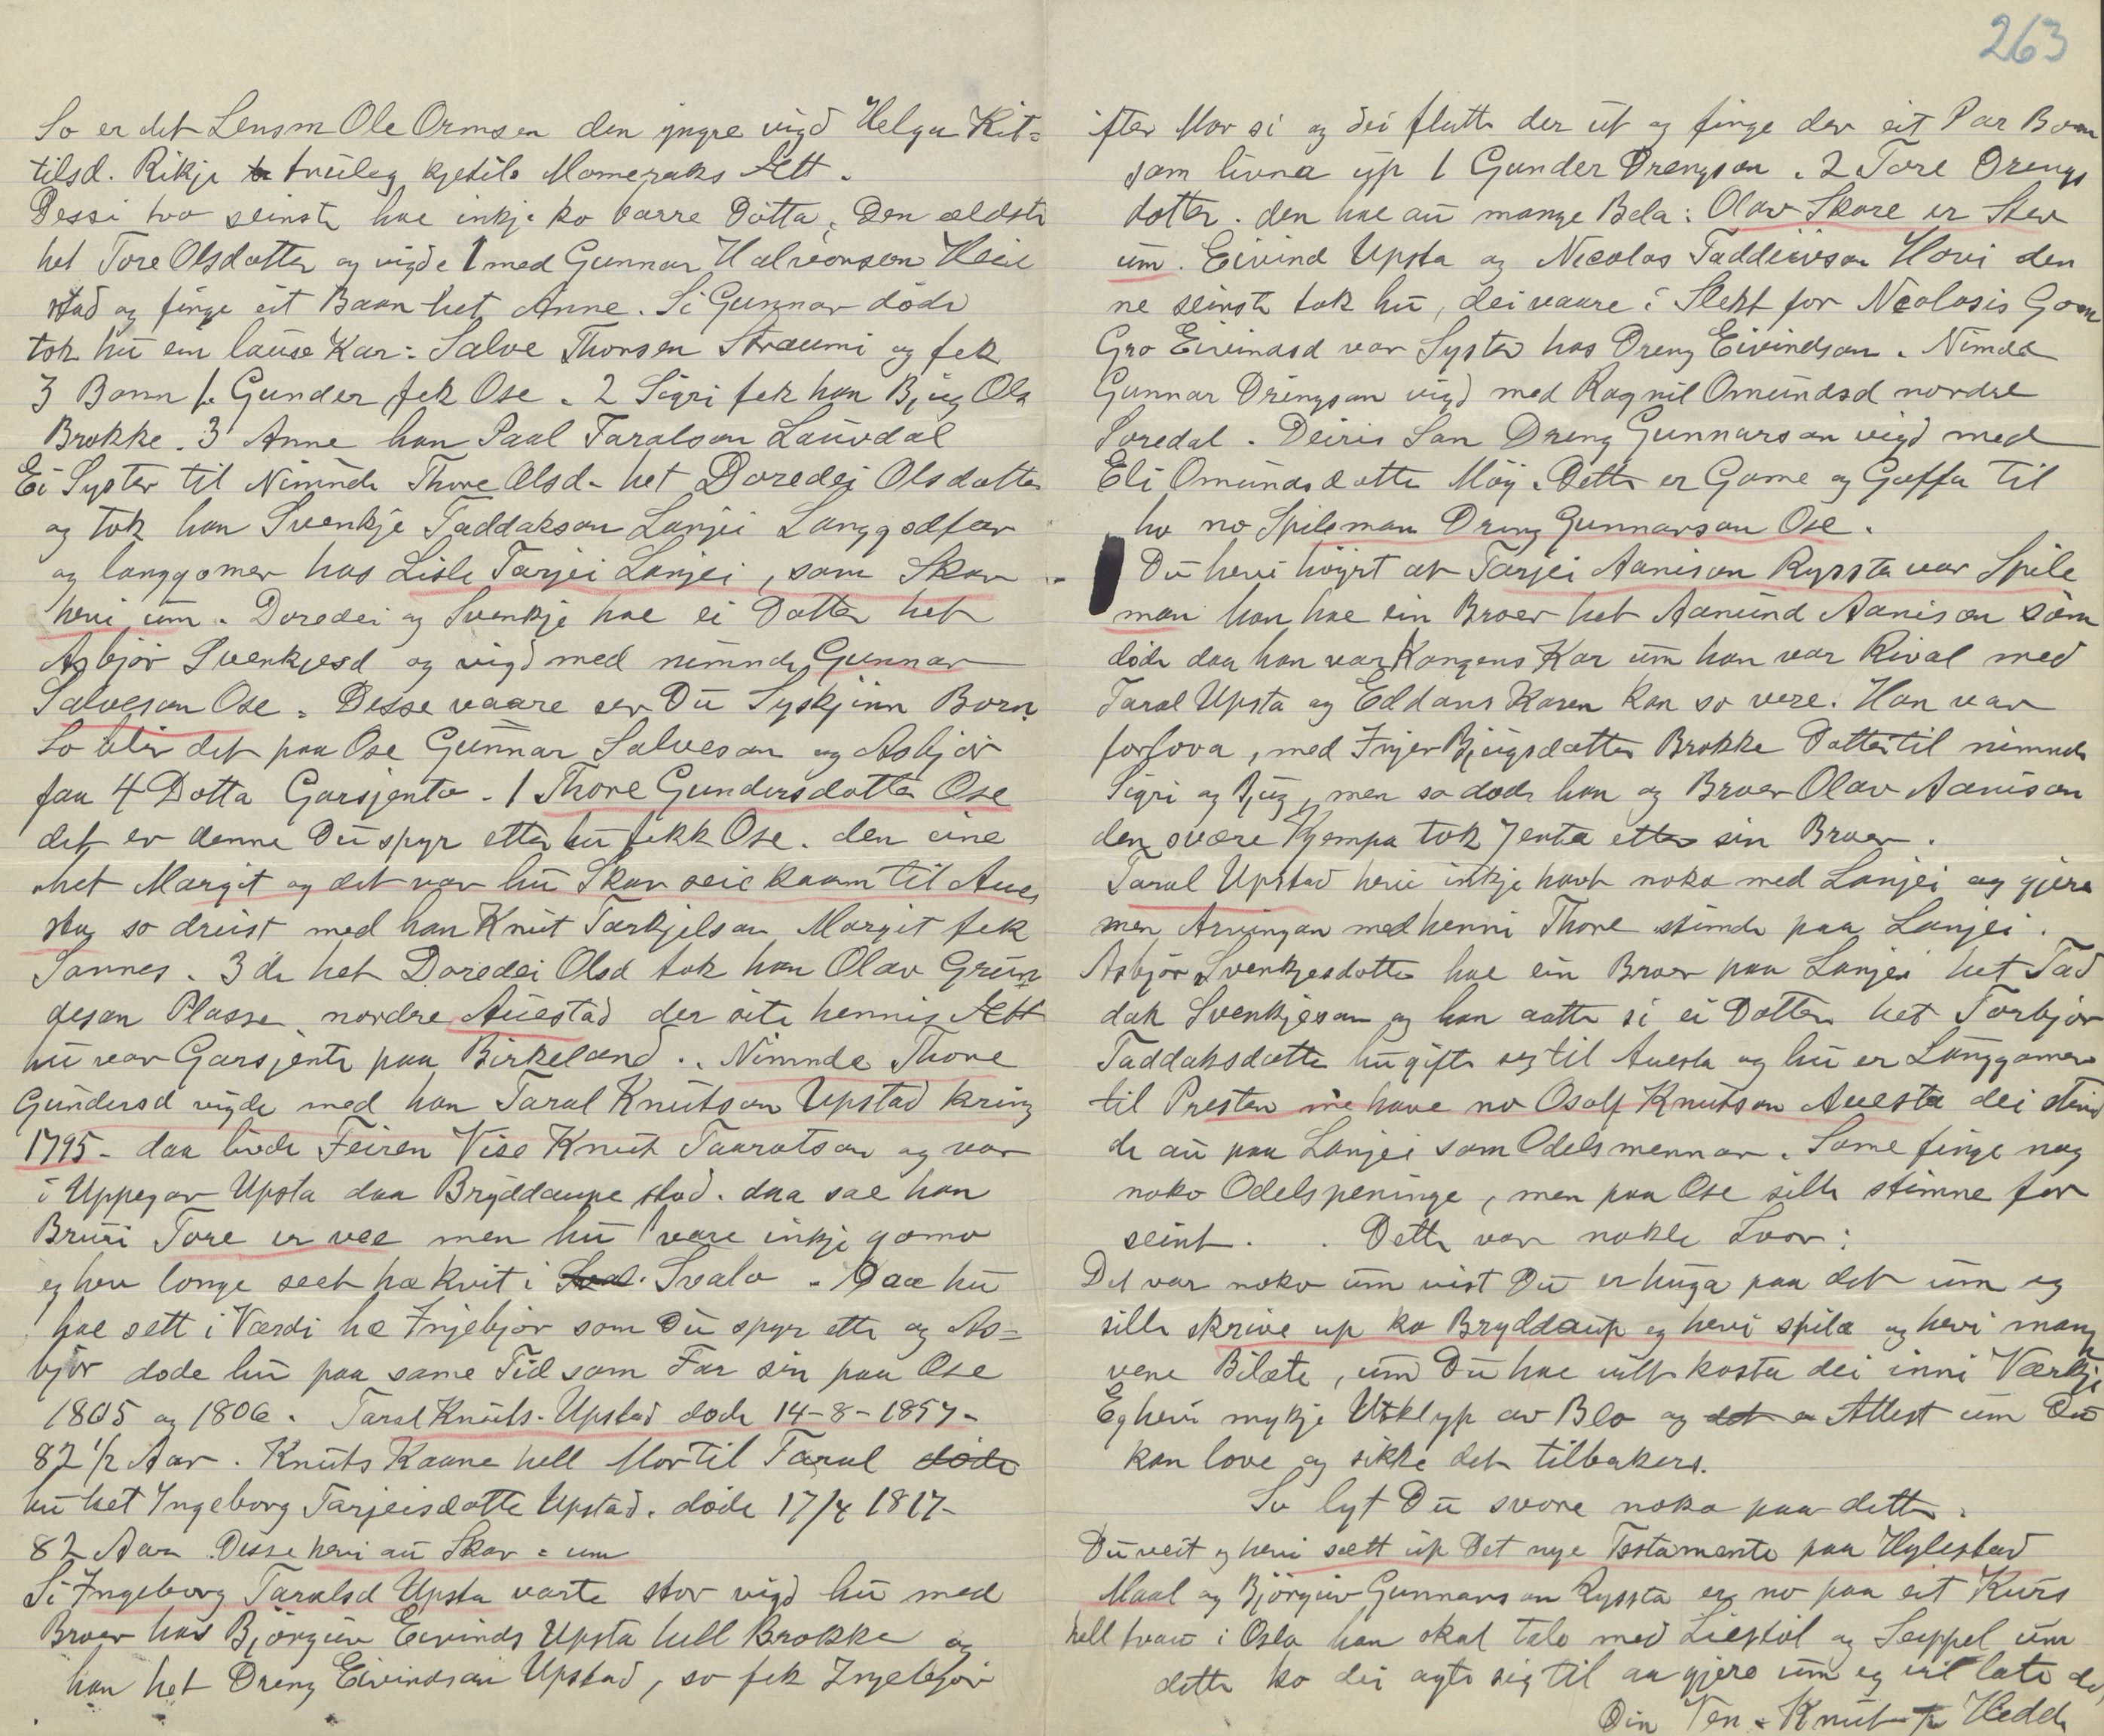 263
So er det Lensm Ole Ormsen den yngre vigd Helga Kit=
tilsd. Rikje truleg kjetils Momeraks Ætt.
Dessi two seinste hae inkje ko barre Dotta. Den ældste
het Tore Olsdotter og vigde 1 med Gunnar Halvorson Heie
stad og finge eit Baan het Anne. Si Gunnar döde
tok hu ein lause Kar = Salve Thorsen Straumi og fek
3 Bonn 1. Gunder fek Ose. 2 Sigri fek han Bjug Ola
Brokke. 3 Anne han Paal Taralson Lauvdal
Ei Syster til Nimnde Thore Olsd. het Doredei Olsdotter
og tok han Svenkje Taddakson Lanjei Langgodfar
og langgomer has Lisle Tarjei Lanjei, som Skar
hevi um. Doredei og Svenkje hae ei Dotter het
Asbjör Svenkjesd og vigd med nimnde Gunnar
Salveson Ose. Desse vaare ser Du Syskjinn Born.
So blir det paa Ose Gunnar Salveson og Asbjör
faa 4 Dotta Garsjento. 1 Thore Gundersdotter Ose
det er denne Du spyr etter hu fekk Ose. den eine
het Margit og det var hu Skar seie kaam til Aues
sta so dreist med han Knut Tarkjelson Margit fek
Sannes. 3de het Doredei Olsd tok han Olav Grun
deson Plassa nordre Auestad der site hennis Ætt
hu var Garsjente paa Birkeland. Nimnde Thore
Gundersd vigde med han Taral Knutson Upstad kring
1795. daa livde Feiren Vise Knut Taaratson og var
i Uppegar Upsta daa Bryddaupe stod. daa sae han
Bruri Tore er vee men hu vare inkje gomo
eg hev longe seet hæ kvit i Svalo. Daa hu
hae sett i Værdi hæ Injebjör som Du spyr ette og As=
björ døde hu paa same Tid som Far sin paa Ose
1805 og 1806. Taral Knuts. Upstad døde 14-8-1857-
82 1/2 Aar. Knuts Kaane hell Mor til Taral döde
hu het Ingeborg Tarjeisdotte Upstad. døde 17/4 1817-
82 Aar. Desse hevi au Skar = um
Si Ingeborg Taralsd Upsta varte stor vigd hu med
Broer has Björgu̇v Eivinds Upsta hell Brokke og
han het Dreng Eivindson Upstad, so fek Ingebjör
ifter Mor si og dei flutte der ut og finge der eit Par Bonn
som livna up 1 Gunder Drengson. 2 Tore Drengs
dotter. den hae au mange Bela: Olav Skare er Stev
um. Eivind Upsta og Nicolas Taddeivson Hovi den
ne seinste tok hu, dei vaare i Slekt for Nicolasis Gom
Gro Eivindsd var Syster has Dreng Eivindson. Nimde
Gunnar Drengson vigd med Ragnil Omundsd nordre
Soredal. Deiris Son Dreng Gunnarson vigd med
Eli Omundsdotte Möy. Dette er Gome og Goffa til
ho no Spileman Dreng Gunnarson Ose.
Du hevi höyrt at Tarjei Aanison Ryssta var Spile
man han hae ein Broer het Aanund Aanison som
döde daa han var Kongens Kar um han var Rival med
Taral Upsta og Eddans Karen kan so vere. Han var
forlova, med Injer Bjugsdotter Brokke Dotter til nimnde
Sigri og Bjug, men so døde han og Broer Olav Aanison
den svære Kjempa tok Jenta etter sin Broer.
Taral Upstad hevi inkje havt noko med Lanjei og gjera
men Arvingan med henni Thore stimde paa Lanjei.
Asbjör Svenkjesdotte hae ein Broer paa Lanjei het Tad
dak Svenkjeson og han aatte si ei Dotter het Torbjör
Taddaksdotte hu gifte seg til Auesta og hu er Langgomer
til Presten me have no Osalf Knutson Auesta dei stim
de au paa Lanjei som Odelsmennar. Some finge nog
noko Odelspeninge, men paa Ose sille stimne for
seint. Dette var nokle Svor:
Det var noko um vist Du er huga paa det um eg
sille skrive up ko Bryddaup eg hevi spila og hevi mang
vene Bilæte, um Du hae vilt kosta dei inni Værkje
Eg hevi mykje Utklyp av Blo og Attest um Du
kan love og sikke det tilbakers.
So lyt Du svore noko paa dette.
Du veit eg hevi sætt up Det nye Testamente paa Hylestad
Maal og Björgu̇v Gunnarson Ryssta er no paa eit Kurs
hell tvau i Oslo han skal talo med Liestöl og Seippel um
dette ko dei agte sig til aa gjere um eg vil late de
Din Ven. Knut Hedde